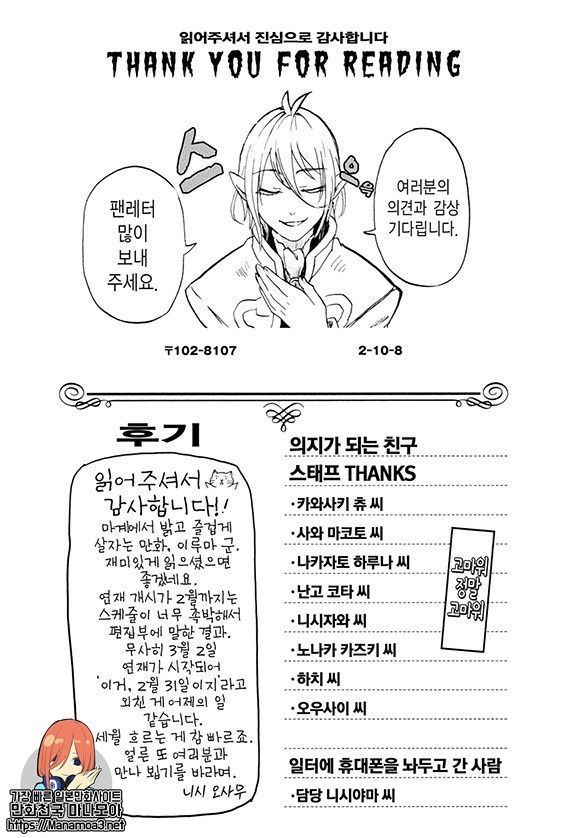 읽어주셔서 진심으로 감사합니다
THANK YOU FOR READING
스
윽
여러분의
의견과 감상
기다립니다.
팬레터
많이
보내
주세요.
〒102-8107
2-10-8
후기
읽어 주셔서
감사합니다!!
마계에서 밝고 즐겁게
살자는 만화, 이루마 군.
재미있게 읽으셨으면
좋겠네요.
연재 개시가 2월까지는
스케줄이 너무 촉박해서
편집부에 말한 결과.
무사히 3월 2일
연재가 시작되어
'이거, 2월 31일이지'라고
외친 게 어제의 일
같습니다.
세월 흐르는 게 참 빠르죠.
얼른 또 여러분과
만나 뵙기를 바라며.
니시 오사무
의지가 되는 친구
스태프 THANKS
·카와사키 츄 씨
·사와 마코토 씨
·나카자토 하루나 씨
·난고 코타 씨
·니시자와 씨
·노나카 카즈키 씨
·하치 씨
·오우사이 씨
고마워
정말
고마워
일터에 휴대폰을 놔두고 간 사람
·담당 니시야마 씨
가장 빠른 일본만화사이트
만화천국 마나모아
https://Manamoa3.net